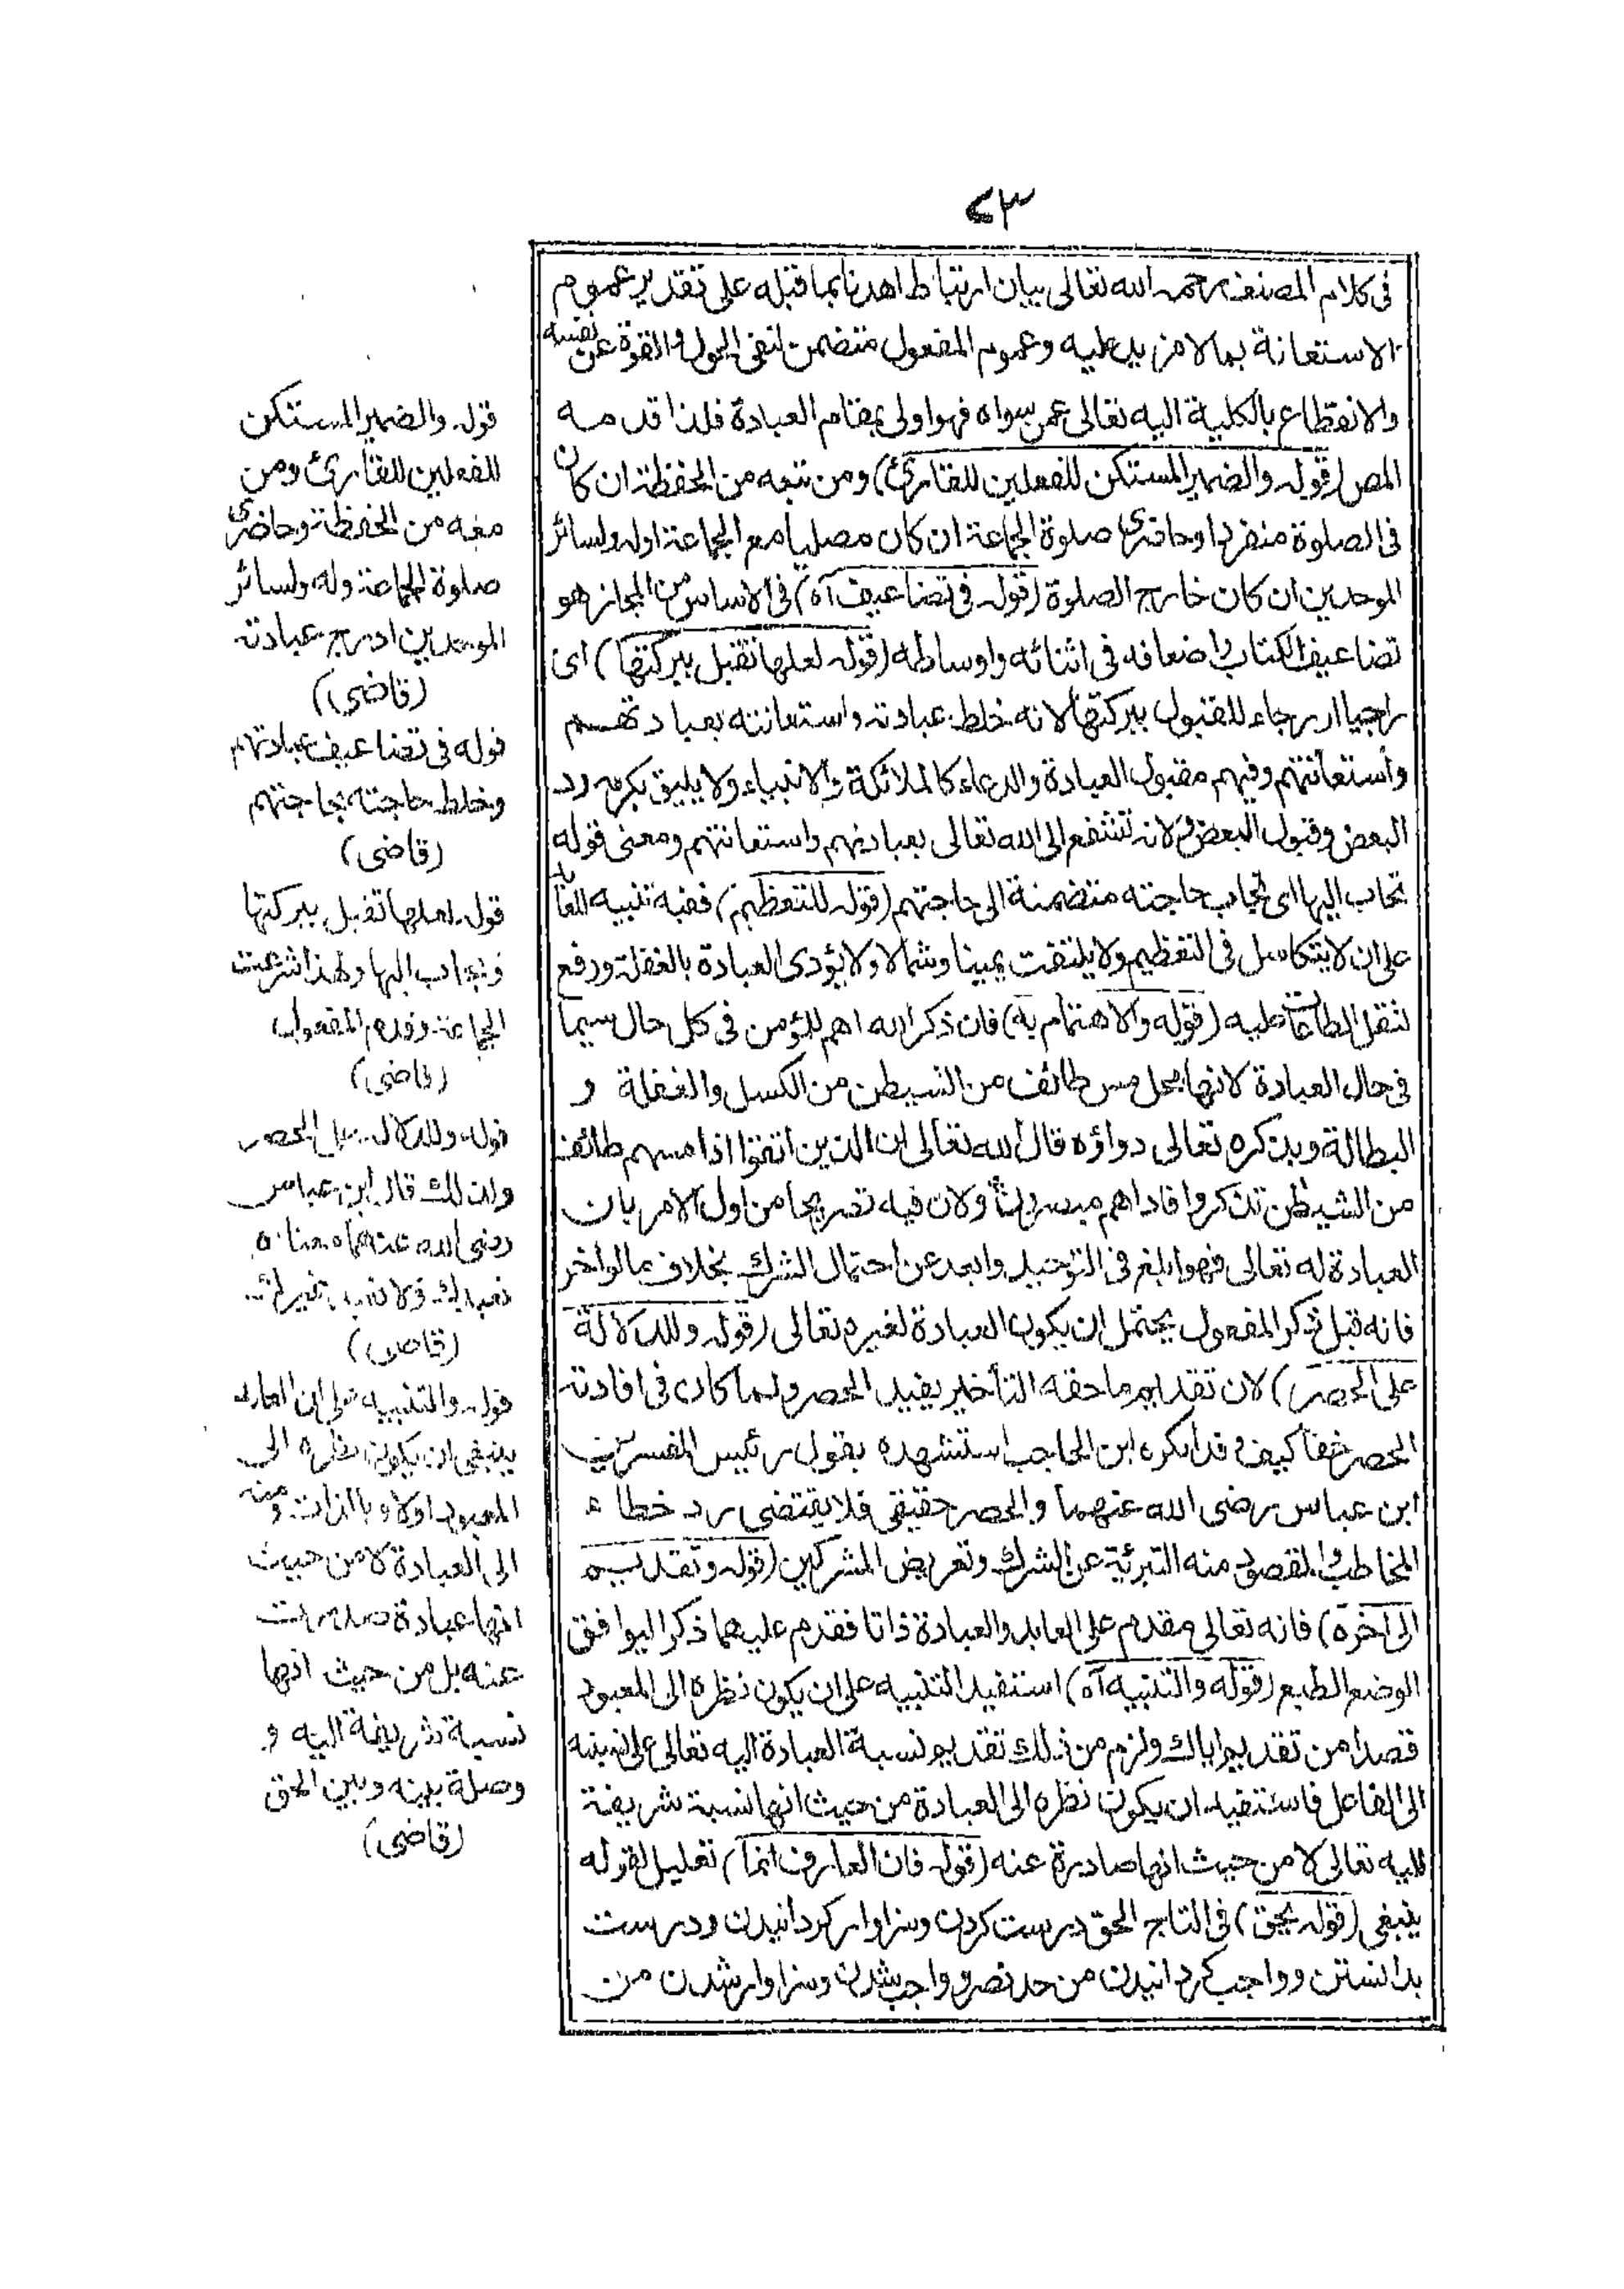 ٢٣
فى كلام المصنف رحمه الله تعالى بيان ارتباط اهدنا بما قبله على تقدير عموم
الاستعانة بما لا مزيد عليه وعموم المفعول متضمن لنفى الحول والقوة عن نفسه
والانقطاع بالكلية اليه تعالى عمن سواه فهو اولى بمقام العبادة فلذا قدمه
المص (قوله والضمير المستكن للفعلين للقارئ) ومن تبعه من الحفظة ان كان
فى الصلوة منفردا وحاضرى صلوة الجماعة ان كان مصليا مع الجماعة اوله ولسائر
الموحدين ان كان خارج الصلوة (قوله فى تضاعيف آه) فى الاساس من المجاز هو
تضاعيف الكتاب واضعافه فى اثنائه واوساطه (قوله لعلها تقبل ببركتها) اى
راجيا او رجاء للقبول ببركتها لانه خلط عبادته واستعانته بعبادتهم
واستعانتهم وفيهم مقبول العبادة والدعاء كالملائكة والانبياء ولا يليق بكرمه رد
البعض وقبول البعض ولانه تشفع الى الله تعالى بعبادتهم واستعانتهم ومعنى قوله
تجاب اليها اى تجاب حاجته متضمنة الى حاجتهم (قوله للتعظيم) ففيه تنبيه للقارئ
على ان لا يتكاسل فى التعظيم ولا يلتفت يمينا وشمالا ولا يؤدى العبادة بالغفلة ورفع
لثقل الطاعات عليه (قوله والاهتمام به) فان ذكر الله اهم للمؤمن فى كل حال سيما
فى حال العبادة لانها محل مس طائف من الشيطن من الكسل والغفلة و
البطالة وبذكره تعالى دواؤه قال الله تعالى ان الذين اتقوا اذا مسهم طائف
من الشيطن تذكروا فاذا هم مبصرون ولان فيه تصريحا من اول الامر بان
العبادة له تعالى فهو ابلغ فى التوحيد وابعد عن احتمال الشرك بخلاف ما لو اخر
فانه قبل ذكر المفعول يحتمل ان يكون العبادة لغيره تعالى (قوله وللدلالة
على الحصر) لان تقديم ما حقه التأخير يفيد الحصر ولما كان فى افادته
الحصر خفا كيف وقد انكره ابن الحاجب استشهده بقول رئيس المفسرين
ابن عباس رضى الله عنهما والحصر حقيقى فلا يقتضى رد خطاء
المخاطب والمقصود منه التبرئة عن الشرك وتعريض المشركين (قوله وتقديم
الى اخره) فانه تعالى مقدم على العابد والعبادة ذاتا فقدم عليهما ذكرا ليوافق
الوضع الطبع (قوله والتنبيه آه) استفيد التنبيه على ان يكون نظره الى المعبود
قصدا من تقديم اياك ولزم من ذلك تقديم نسبة العبادة اليه تعالى على نسبته
الى الفاعل فاستفيد ان يكون نظره الى العبادة من حيث انها نسبة شريفة
اليه تعالى لا من حيث انها صادرة عنه (قوله فان العارف انما) تعليل لقوله
ينبغى (قوله يحق) فى التاج الحق درست كردن وسزاوار كردانيدن ودرست
بدانستن وواجب كردانيدن من حد نصر وواجب شدن وسزاوار شدن من
قوله والضمير المستكن
للفعلين للقارئ ومن
معه من الحفظة وحاضرى
صلوة الجماعة وله ولسائر
الموحدين ادرج عبادته
(قاضى)
قوله فى تضاعيف عبادتهم
وخلط حاجته بحاجتهم
(قاضى)
قوله لعلها تقبل ببركتها
وتجاب اليها ولهذا شرعت
الجماعة وقدم المفعول
(قاضى)
قوله وللدلالة على الحصر
ولذلك قال ابن عباس
رضى الله عنهما معناه
نعبدك ولا نعبد غيرك
(قاضى)
قوله والتنبيه على ان العابد
ينبغى ان يكون نظره الى
المعبود اولا وبالذات ومنه
الى العبادة لا من حيث
انها عبادة صدرت
عنه بل من حيث انها
نسبة شريفة اليه و
وصلة بينه وبين الحق
(قاضى)